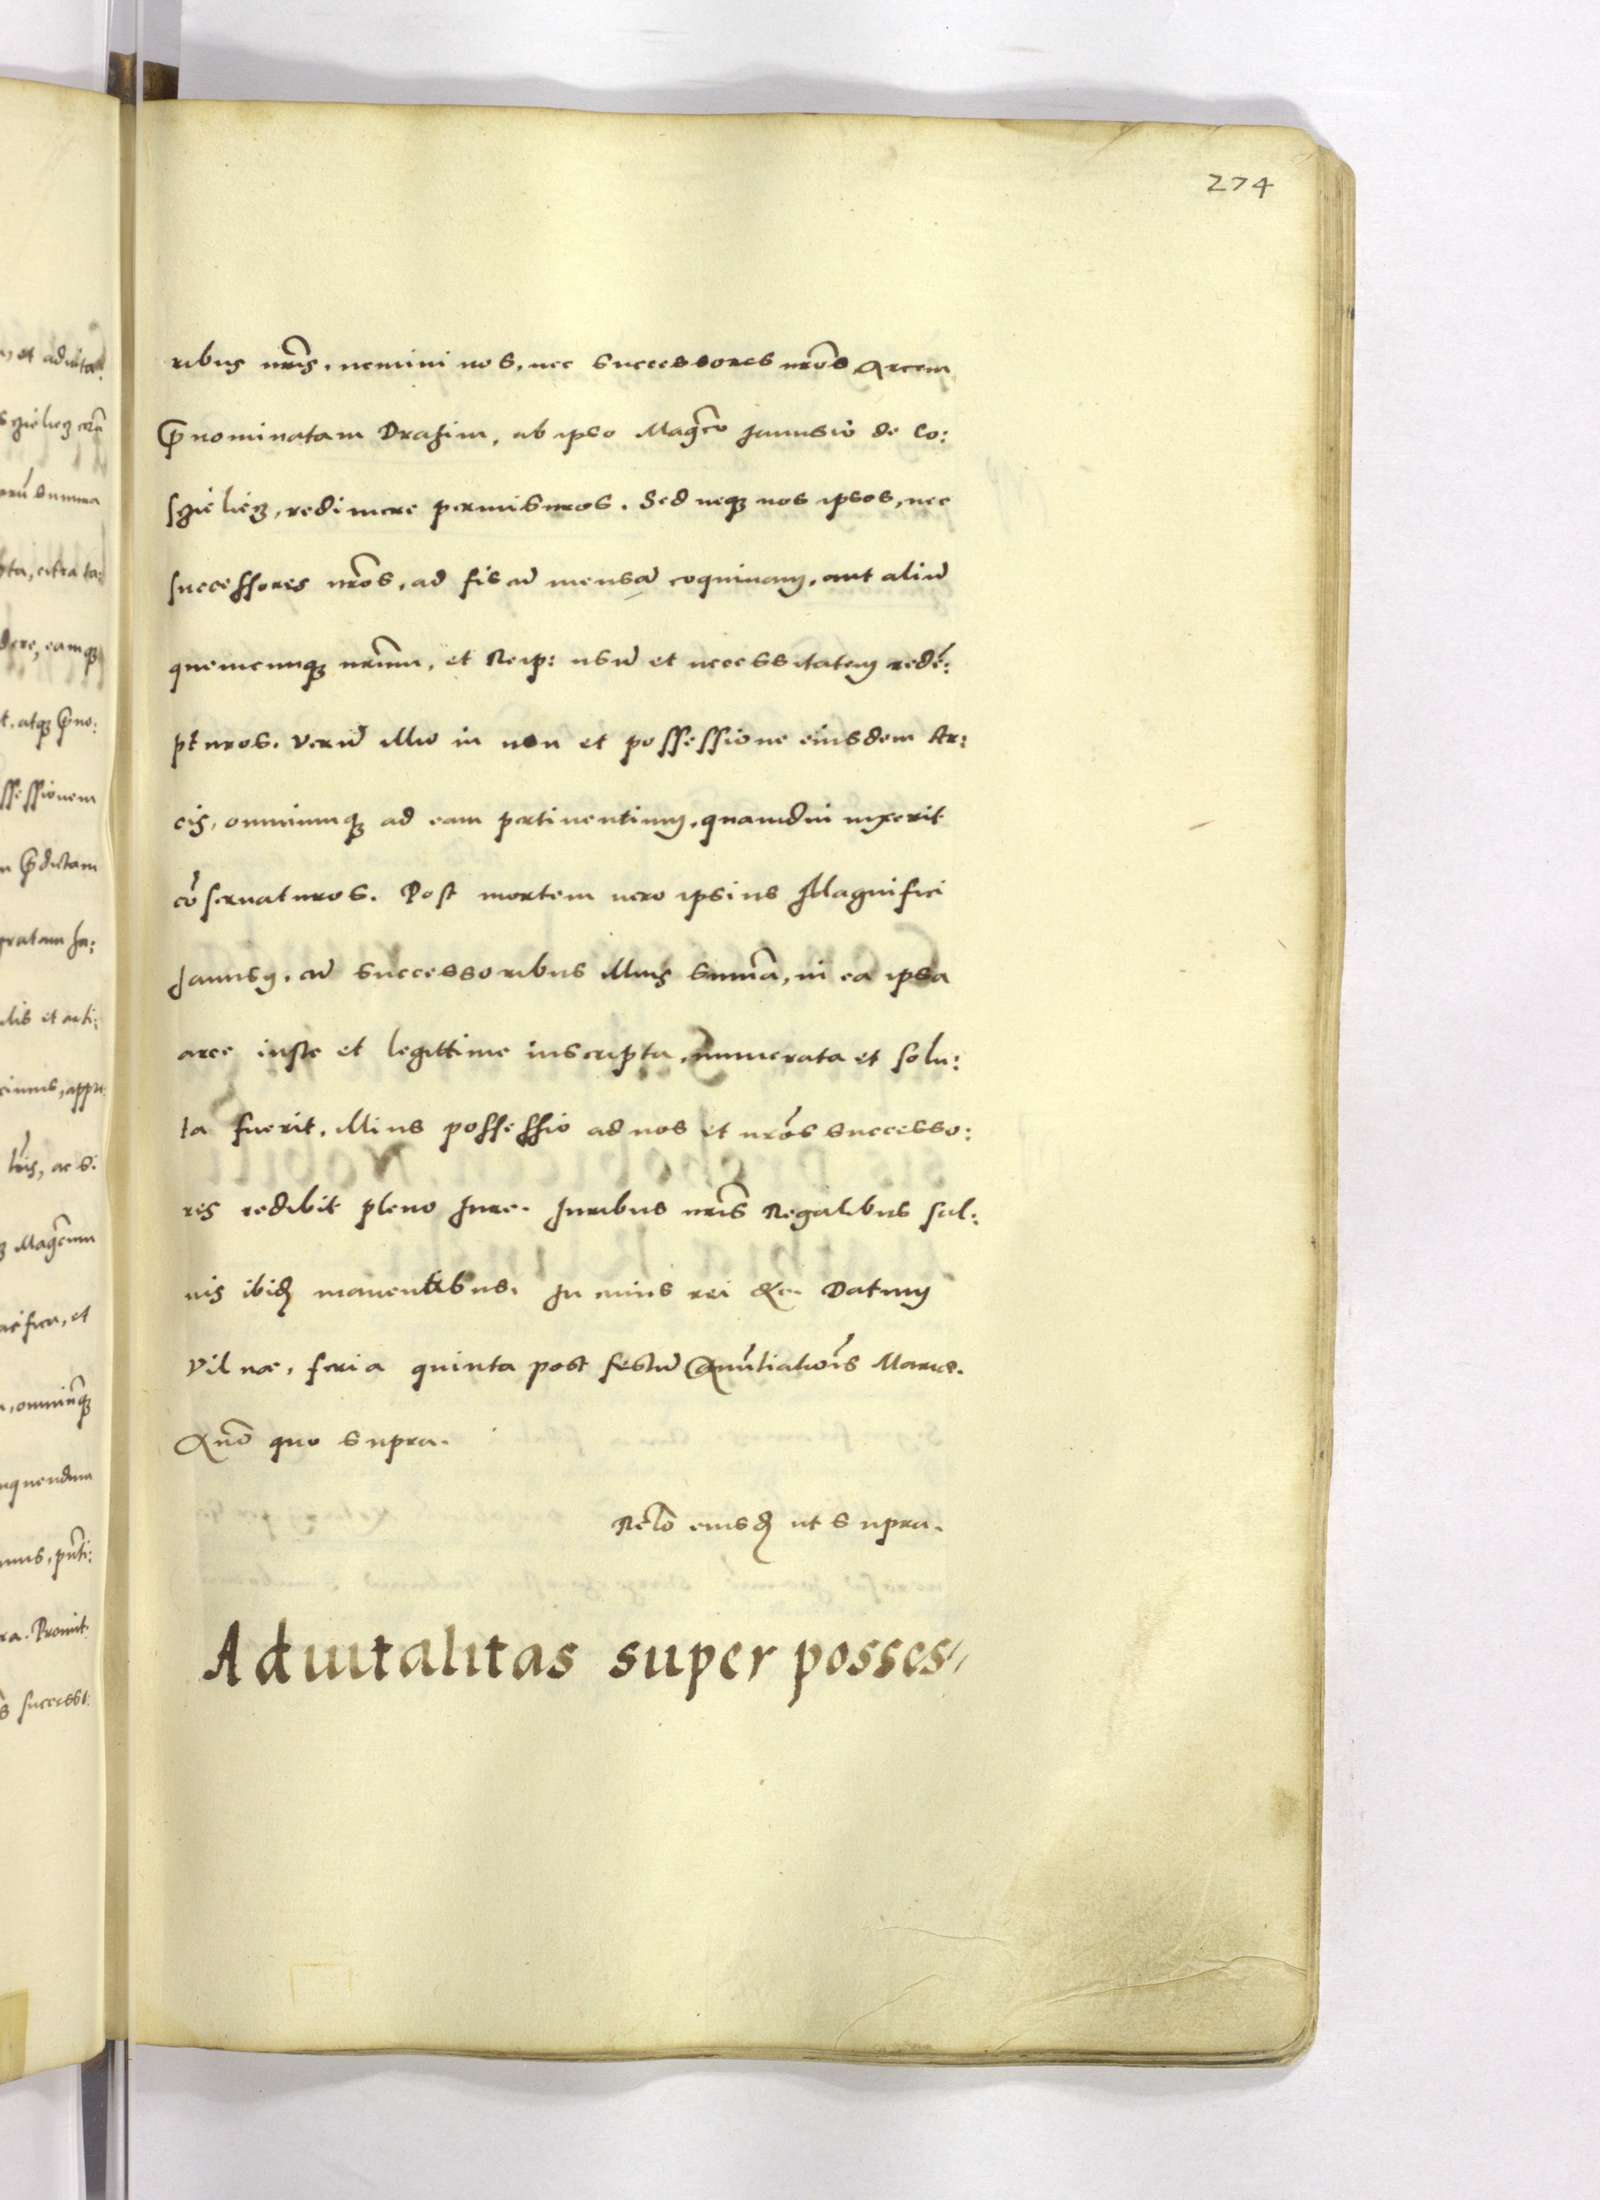 274
ribus nr̃is, nemini nos, nec successores nr̃os Arcem
p̃nominatam Drahim, ab ipso Mag̃co Janusio de Co:
szieliecz, redimere permissuros. Sed neq; nos ipsos, nec
successores nr̃os, ad fiscũ mensã coquinam, aut aliũ
quemcunq; nr̃um, et Reip: usũ et necessitatem redẽ:
pturos. Verũ illũ in usu et possessione eiusdem Ar:
cis, omniumq; ad eam pertinentium, quamdiu uixerit
cõseruaturos. Post mortem uero ipsius Magnifici
Janusij, cũ successoribus illius sum̃a, in ea ipsa
arce iuste et legittime inscripta, numerata et solu:
ta fuerit, illius possessio ad nos et nr̃os successo:
res redibit pleno Jure. Juribus nr̃is Regalibus sal:
uis ibid̃ manentibus. In cuius rei &c. Datum
Vilnæ, feria quinta post festũ Anũtiatiõis Mariæ.
Añõ quo supra.
Rel̃o eiusd̃ ut supra.
Aduitalitas super posses//